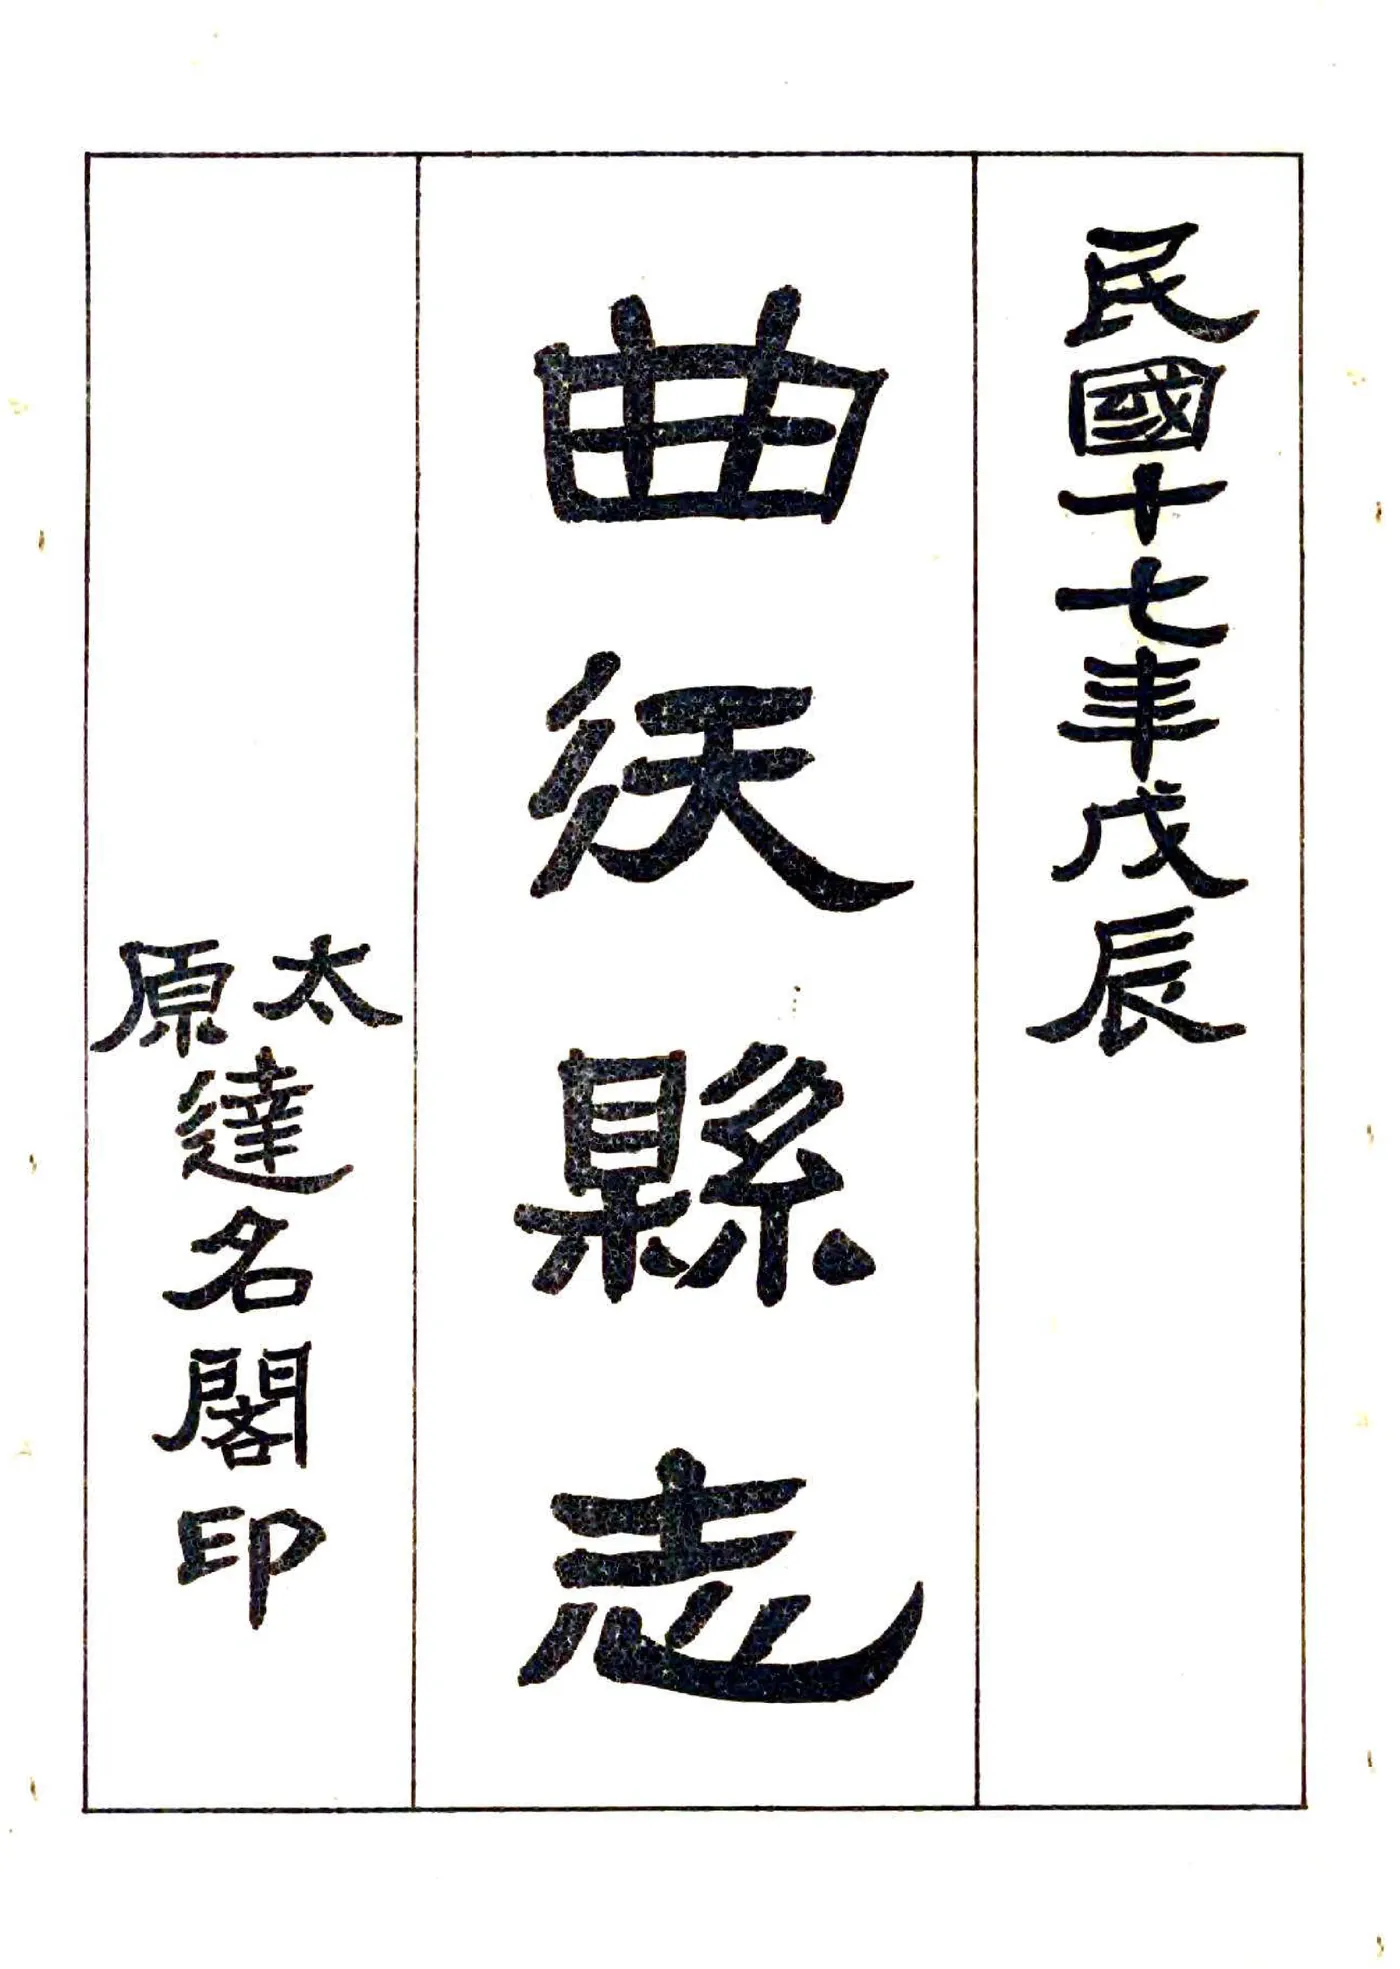 民國十七年戊辰
曲沃縣志
太原達名閣印